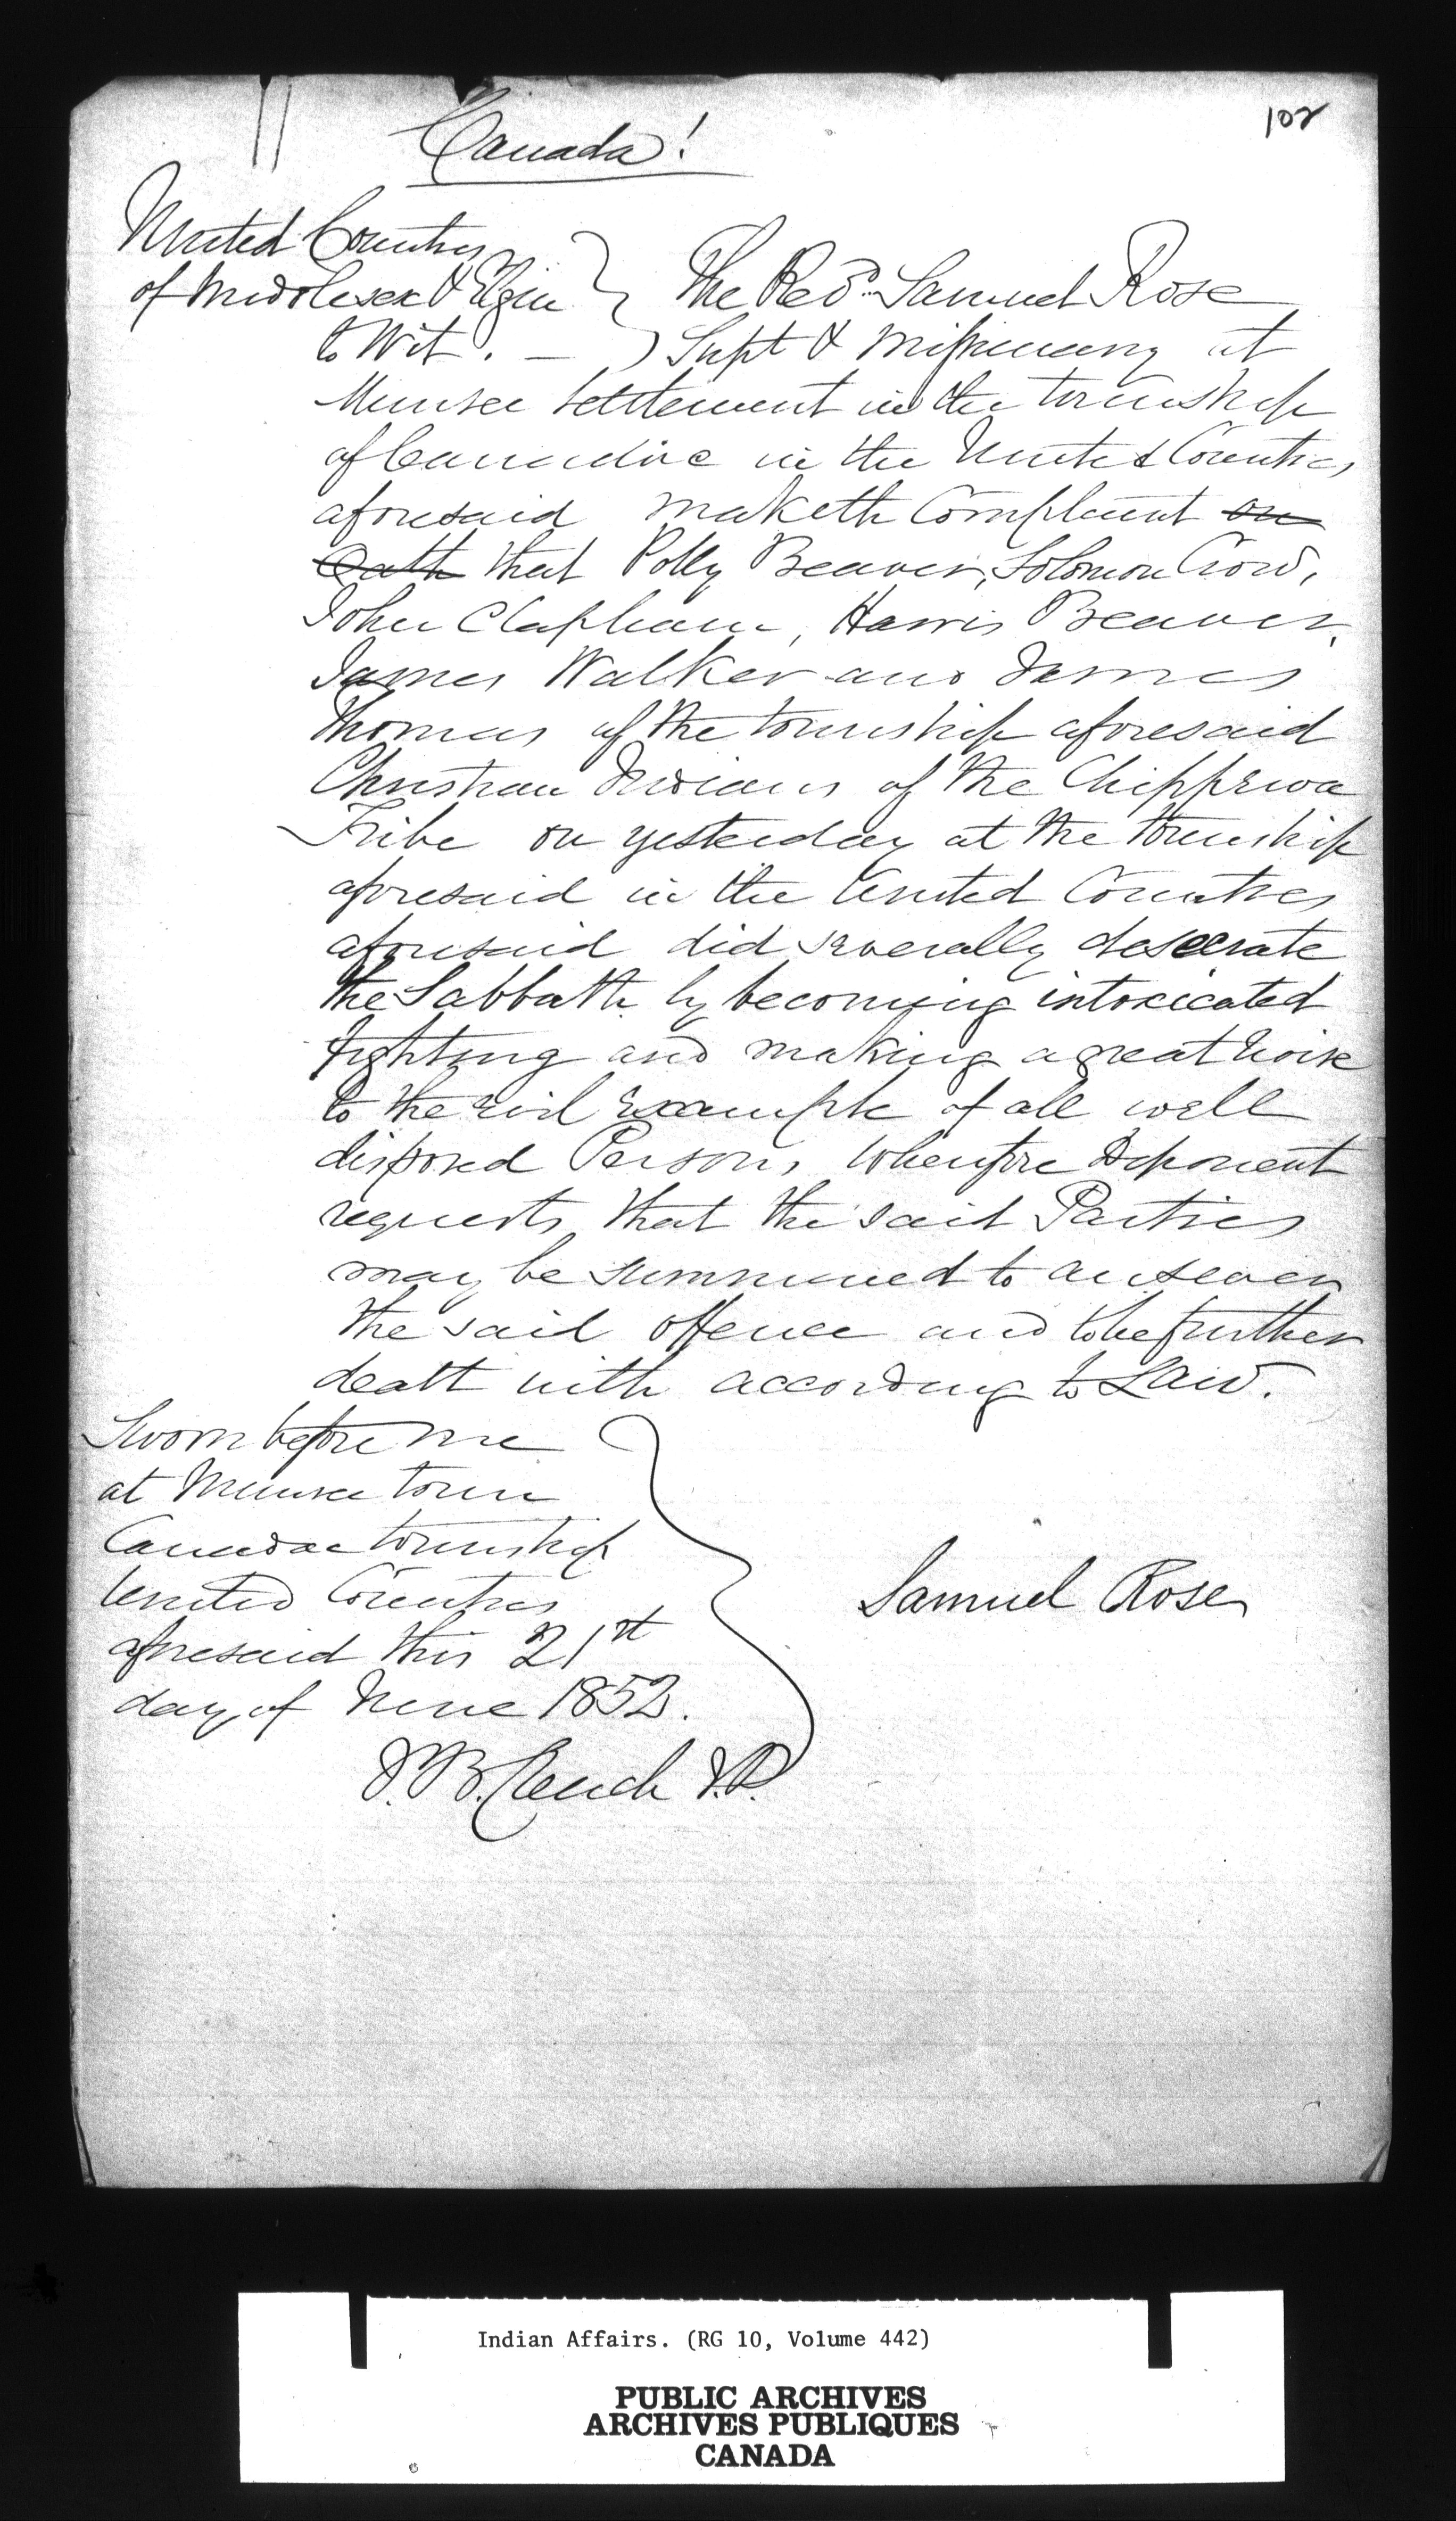 102
Canada!
United Counties
of Middlesex & Elgin } The Revd. Samuel Rose
to Wit. — ) Supt & Missionary at
Munsee Settlement in the township
of Carradoc in the United Counties
aforesaid maketh Complaint on
Oath that Polly Beaver, Solomon Crow,
John Clapham, Harris Beaver,
James Walker and James
Thomas of the township aforesaid
Christian Indians of the Chippewa
Tribe on yesterday at the township
aforesaid in the United Counties
aforesaid did severally desecrate
the Sabbath by becoming intoxicated
fighting and making a great noise
to the evil example of all well
disposed Persons, Wherefore Deponent
requests that the said Parties
may be summoned to answer
the said offence and to be further
dealt with according to Law.
Sworn before me
at Munsee town
Caradoc township
United Counties
aforesaid this 21st
day of June 1852.
Samuel Rose
J.B. Clench J.P.
Indian Affairs. (RG 10, Volume 442)
PUBLIC ARCHIVES
ARCHIVES PUBLIQUES
CANADA